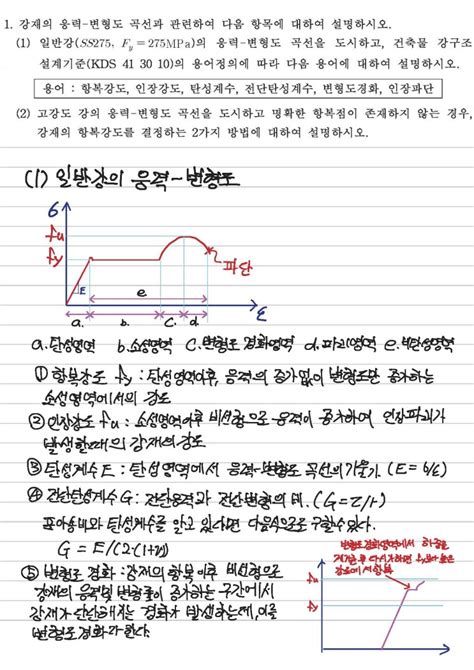 1. 강재의 응력-변형도 곡선과 관련하여 다음 항목에 대하여 설명하시오.
(1) 일반강(SS275, Fy=275MPa)의 응력-변형도 곡선을 도시하고, 건축물 강구조
설계기준(KDS 41 30 10)의 용어정의에 따라 다음 용어에 대하여 설명하시오.
용어 : 항복강도, 인장강도, 탄성계수, 전단탄성계수, 변형도경화, 인장파단
(2) 고강도 강의 응력-변형도 곡선을 도시하고 명확한 항복점이 존재하지 않는 경우,
강재의 항복강도를 결정하는 2가지 방법에 대하여 설명하시오.
(1) 일반강의 응력-변형도
σ
fu
fy
E
e
파단
ε
a. b. c. d
a. 탄성영역 b. 소성영역 c. 변형도 경화영역 d. 파괴영역 e. 비탄성영역
① 항복강도 fy : 탄성영역이후, 응력의 증가없이 변형도만 증가하는
소성영역에서의 강도
② 인장강도 fu : 소성영역이후 비선형으로 응력이 증가하여 인장파괴가
발생할때의 강재의 강도
③ 탄성계수 E : 탄성영역에서 응력-변형도 곡선의 기울기 (E = σ/ε)
④ 전단탄성계수 G : 전단응력과 전단변형의 비. (G = τ/γ)
포아송비와 탄성계수를 알고 있다면 다음식으로 구할수 있다.
G = E/(2·(1+ν))
⑤ 변형도 경화 : 강재의 항복이후 비선형으로
강재의 응력및 변형률이 증가하는 구간에서
강재가 단단해지는 경화가 발생하는데, 이를
변형도 경화라 한다.
변형도 경화영역에서 하중을
제거한 후 다시 가하면 fy보다 높은
강도에서 항복
fu
fy